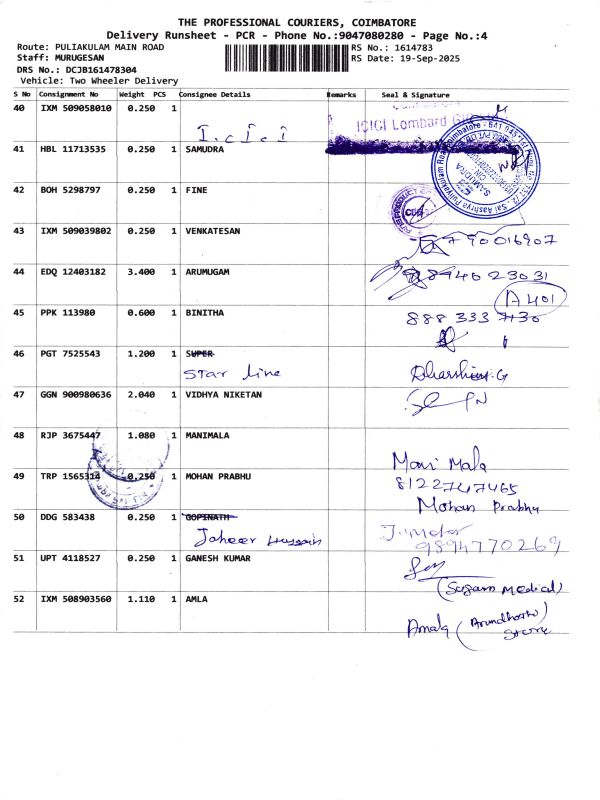 THE PROFESSIONAL COURIERS, COIMBATORE
Delivery Runsheet - PCR - Phone No.:9047080280 - Page No.:4
Route: PULIAKULAM MAIN ROAD RS No.: 1614783
Staff: MURUGESAN RS Date: 19-Sep-2025
DRS No.: DCJB161478304
Vehicle: Two Wheeler Delivery
S No Consignment No Weight PCS Consignee Details Remarks Seal & Signature
40 IXM 509058010 0.250 1
I.c.I.i ICICI Lombard
41 HBL 11713535 0.250 1 SAMUDRA
SAMUDRA
42 BOH 5298797 0.250 1 FINE
43 IXM 509039802 0.250 1 VENKATESAN
790016907
44 EDQ 12403182 3.400 1 ARUMUGAM 8940023031
A 401
45 PPK 113980 0.600 1 BINITHA 888 333 7130
46 PGT 7525543 1.200 1 SUPER
Star line Dharshini.G
47 GGN 900980636 2.040 1 VIDHYA NIKETAN
48 RJP 3675447 1.080 1 MANIMALA
Mani Mala
49 TRP 1565314 0.250 1 MOHAN PRABHU 8122747465
Mohan Prabhu
50 DDG 583438 0.250 1 GOPINATH
Jaheer Hussain 9894770269
51 UPT 4118527 0.250 1 GANESH KUMAR
(Sugam Medical)
52 IXM 508903560 1.110 1 AMLA
Amala (Arundhathi
Store